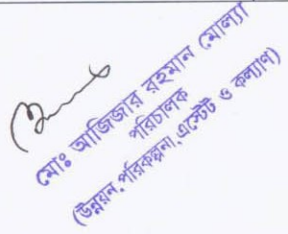 মোঃ আজিজার রহমান মোল্যা
পরিচালক
(উন্নয়ন, পরিকল্পনা, এস্টেট ও কল্যাণ)